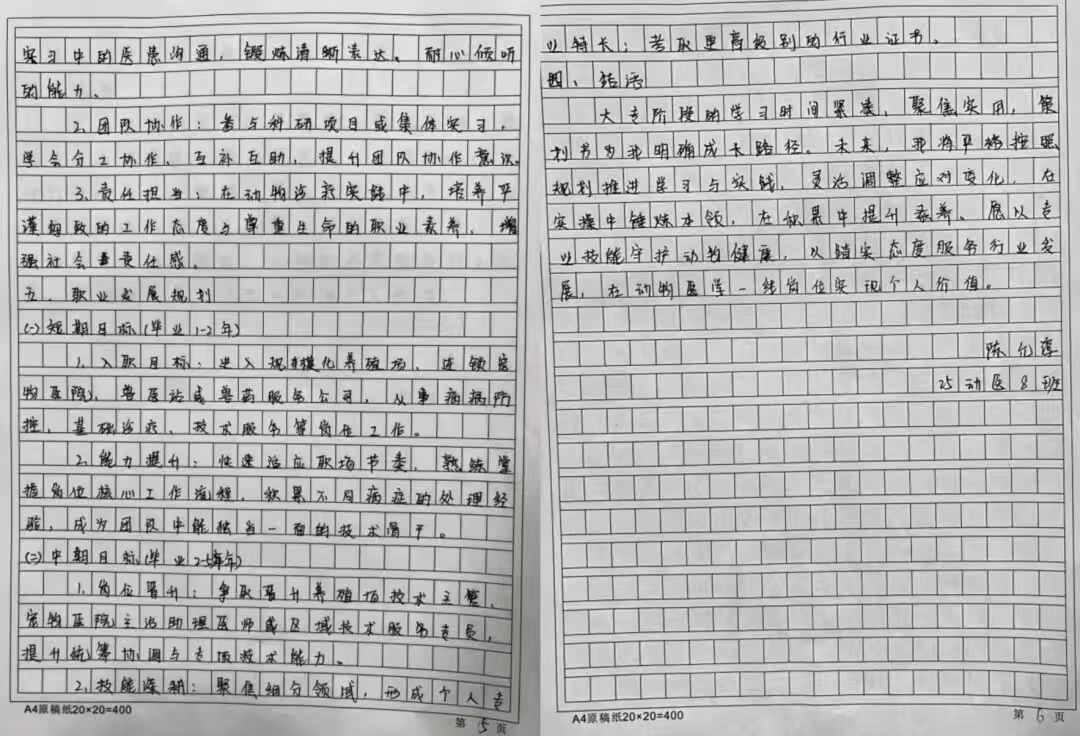 实习中的医患沟通，锻炼清晰表达、耐心倾听
的能力。
2.团队协作：参与科研项目或集体实习，
学会分工协作、互补互助，提升团队协作意识。
3.责任担当：在动物诊疗实践中，培养严
谨细致的工作态度与尊重生命的职业素养，增
强社会责任感。
五、职业发展规划
(一)短期目标(毕业1-2年)
1.入职目标：进入规模化养殖场、连锁宠
物医院、兽医站或兽药服务公司，从事病病防
控、基础诊疗、技术服务等岗位工作。
2.能力提升：快速适应职场节奏，熟练掌
握岗位核心工作流程，积累不同病症的处理经
验，成为团队中能独当一面的技术骨干。
(二)中期目标(毕业2-5年)
1.岗位晋升：争取晋升养殖场技术主管、
宠物医院主治助理医师或区域技术服务专员，
提升统筹协调与专项技术能力。
2.技能深耕：聚焦细分领域，形成个人专
A4原稿纸20×20=400
第5页
业特长；考取更高级别的行业证书。
四、结语
大专阶段的学习时间紧凑、聚焦实用，
划书为我明确成长路径。未来，我将严格按照
规划推进学习与实践，灵活调整应对变化，在
实操中锤炼本领，在积累中提升素养。愿以专
业技能守护动物健康，以踏实态度服务行业发
展，在动物医学一线岗位实现个人价值。
陈允淳
25动医8班
A4原稿纸20×20=400
第6页